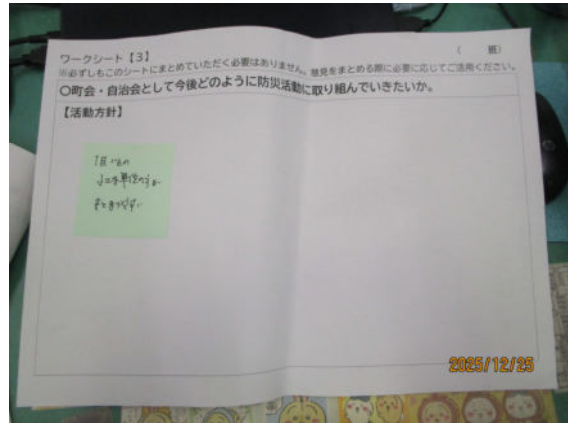 ワークシート【3】
( 班)
※必ずしもこのシートにまとめていただく必要はありません。意見をまとめる際に必要に応じてご活用ください。
〇町会・自治会として今後どのように防災活動に取り組んでいきたいか。
【活動方針】
単位の方が
2025/12/25